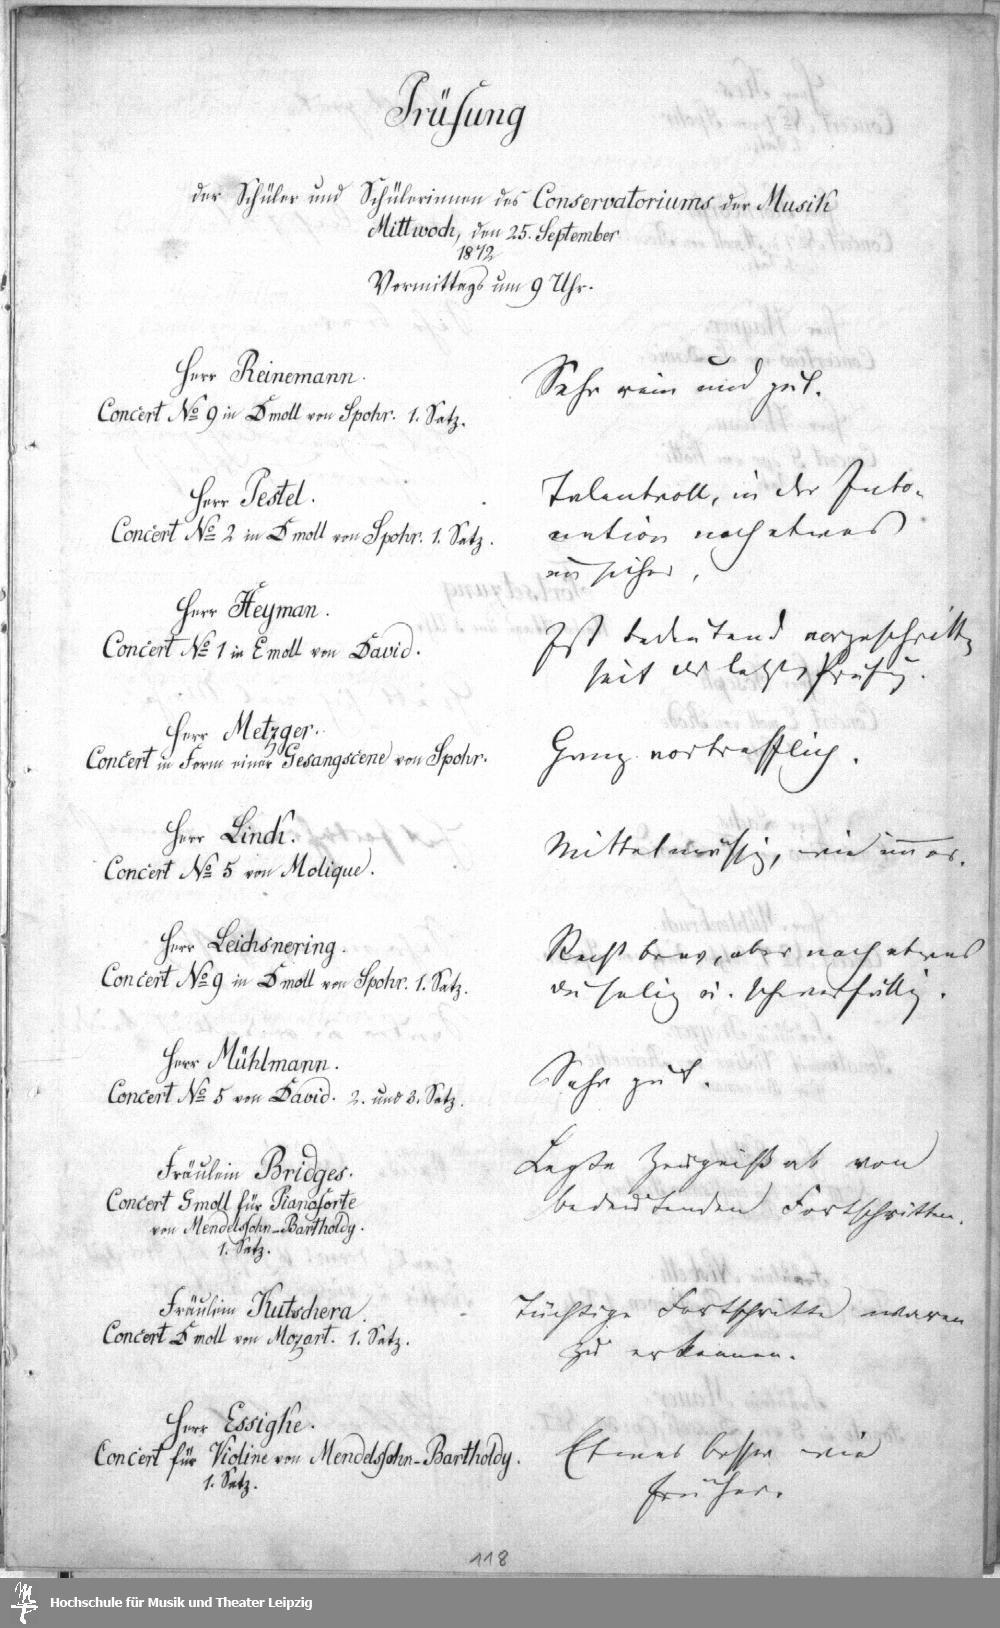 Prüfung
der Schüler und Schülerinnen des Conservatoriums der Musik
Mittwoch, den 25. September
1872
Vormittags um 9 Uhr.
Herr Reinemann.
Concert No 9 in Dmoll von Spohr. 1. Satz.
Sehr rein und gut.
Herr Pestel.
Concert No 2 in Dmoll von Spohr. 1. Satz.
Talentvoll, in der Into-
nation noch etwas
unsicher.
Herr Heyman.
Concert No 1 in Emoll von David.
Ist bedeutend vorgeschritten
seit der letzten Prüfung.
Herr Metzger.
Concert in Form einer Gesangscene von Spohr.
Ganz vortrefflich.
Herr Linck.
Concert No 5 von Molique.
Mittelmäßig, wie immer.
Herr Leichsnering.
Concert No 9 in Dmoll von Spohr. 1. Satz.
Recht brav, aber noch etwas
duselig u. schwerfällig.
Herr Mühlmann.
Concert No 5 von David. 2. und 3. Satz.
Sehr gut.
Fräulein Bridges.
Concert Gmoll für Pianoforte
von Mendelssohn-Bartholdy.
1. Satz.
Legte Zeugniß ab von
bedeutenden Fortschritten.
Fräulein Kutschera.
Concert Dmoll von Mozart. 1. Satz.
Tüchtige Fortschritte waren
zu erkennen.
Herr Essigke.
Concert für Violine von Mendelssohn-Bartholdy.
1. Satz.
Etwas besser wie
früher.
118
Hochschule für Musik und Theater Leipzig